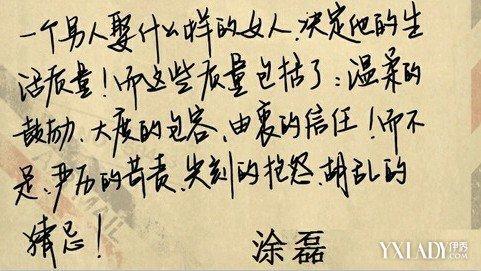 一个男人娶什么样的女人,决定他的生
活质量!而这些质量包括了:温柔的
鼓励、大度的包容、由衷的信任!而不
是,严厉的苛责、尖刻的抱怨、胡乱的
猜忌!
涂磊
YXLADY伊秀
.COM